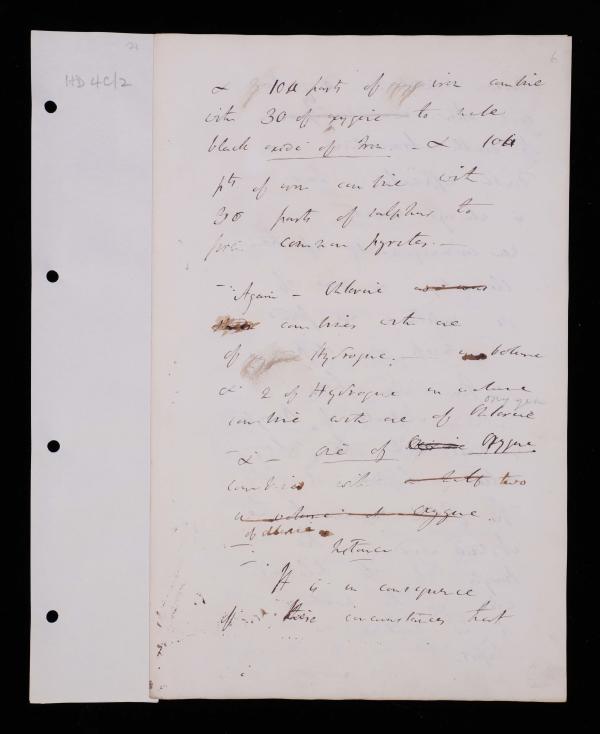 21
6
HD 4C/2
& 100 parts of iron combine
with 30 of oxygene to make
black oxide of Iron – & 100
pts of iron combine with
30 parts of sulphur to
form common pyrites. –
– Again – Chlorine
combines with one
of Hydrogene. – volume
& 2 of Hydrogene in volume
oxygen
combine with one of Chlorine
– & – one of Oxygene
combines with a half two
a volume of oxygene.
of chlorine
– Instance
It is in consequence
of these circumstances that